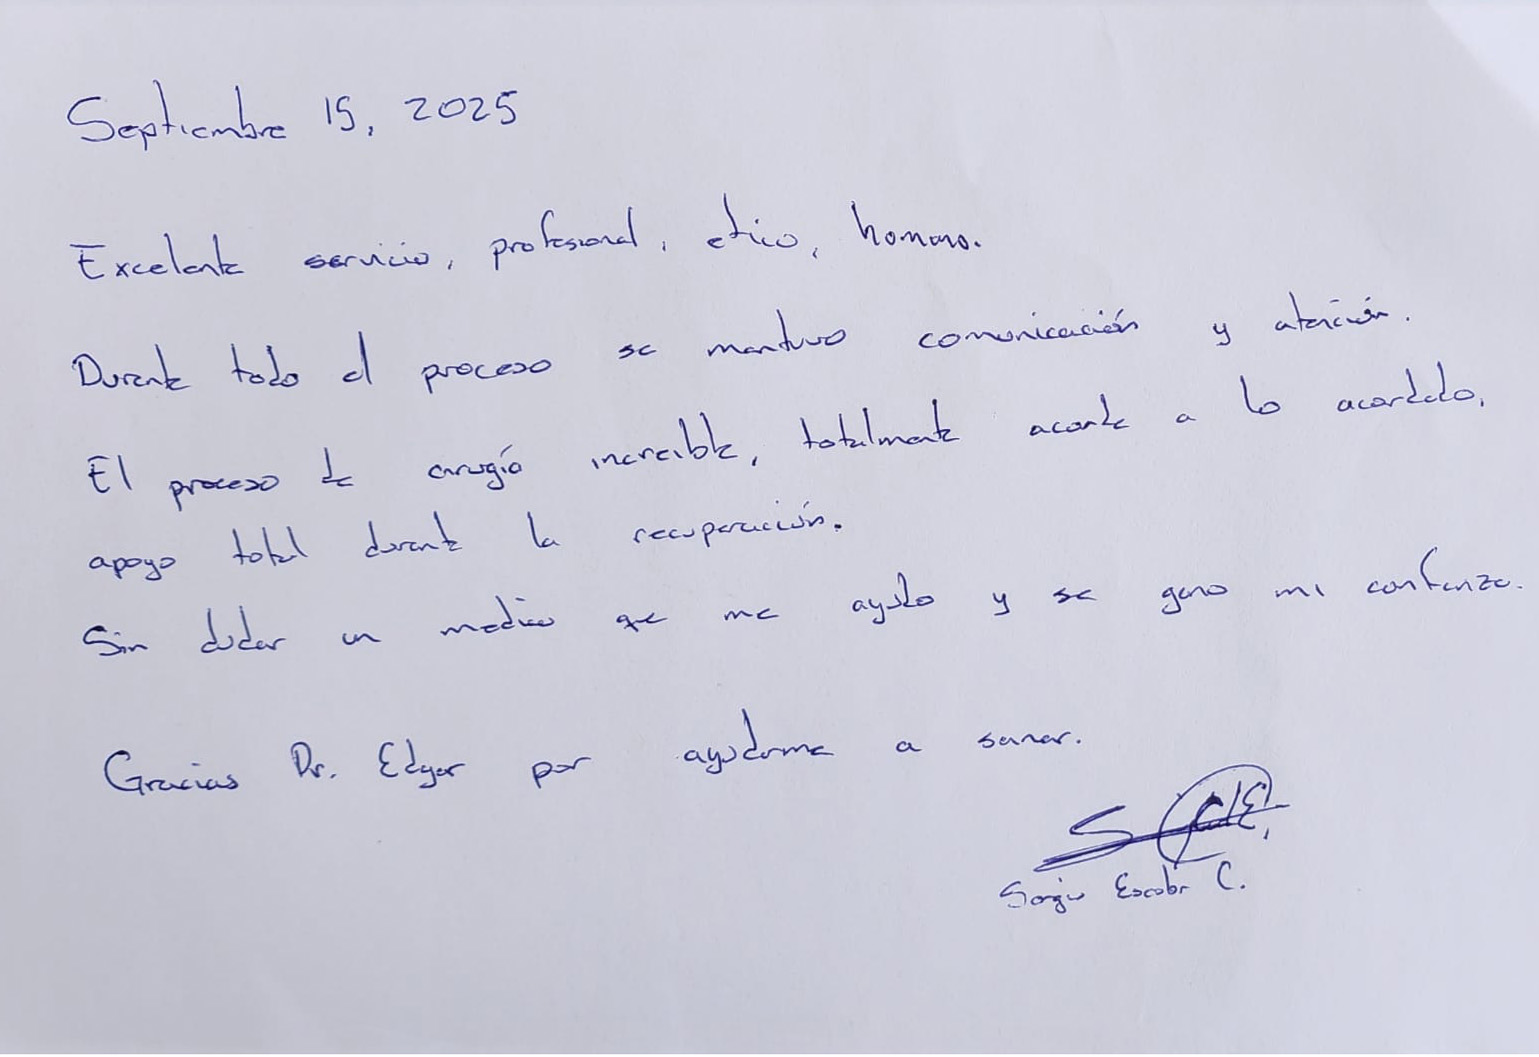 Septiembre 15, 2025
Excelente servicio, profesional, etico, humano.
Durante todo el proceso se mantuvo comunicación y atención.
El proceso de cirugía increible, totalmente acorde a lo acordado,
apoyo total durante la recuperación.
Sin dudar un medico que me ayudo y se gano mi confianza.
Gracias Dr. Edgar por ayudarme a sanar.
Sergio Escobar C.